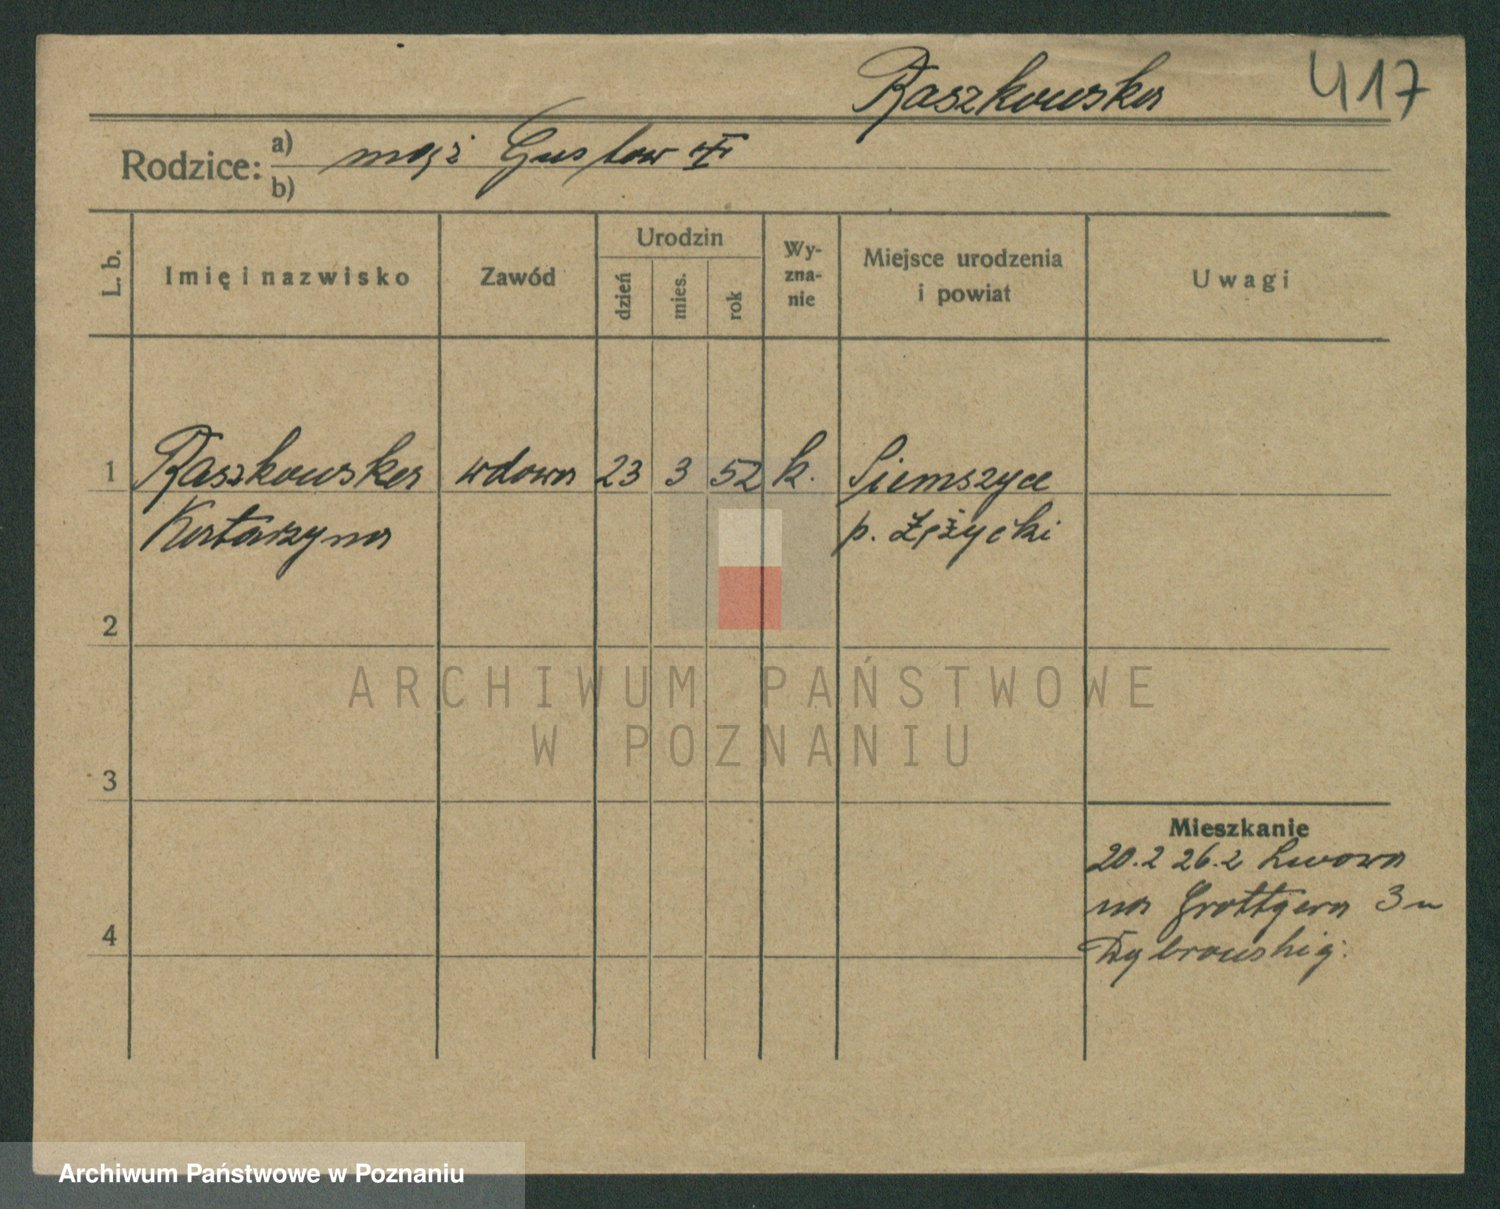 Raszkowska 417
Rodzice: a) mąż Gustaw
b)
L. b. Imię i nazwisko Zawód Urodzin dzień mies. rok Wy-zna-nie Miejsce urodzenia i powiat Uwagi
1 Raszkowska wdowa 23 3 52 k. Siemszyce
Katarzyna p. Łężycki
2
ARCHIWUM PAŃSTWOWE
W POZNANIU
3
Mieszkanie
20.2 26.2 Lwowa
na Grottgera 3 u
4
Archiwum Państwowe w Poznaniu